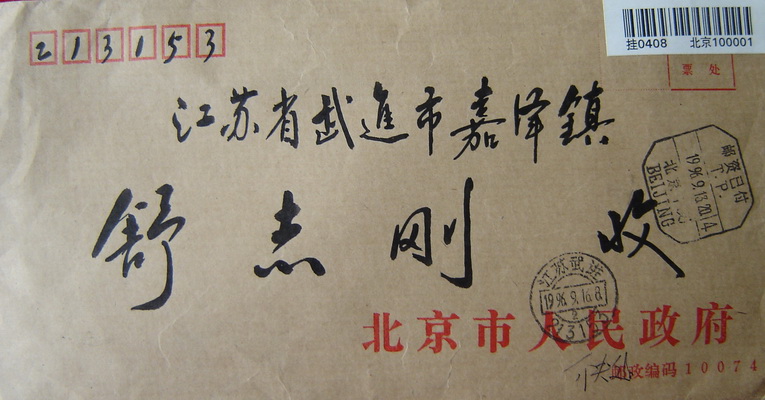 挂0408 北京100001
213153
票 处
江苏省武進市嘉泽鎮
舒志刚 收
邮资已付
T.P.
1996.9.13.20
北京
BEIJING
江苏武进
1996.9.16.8
北京市人民政府
邮政编码 10074